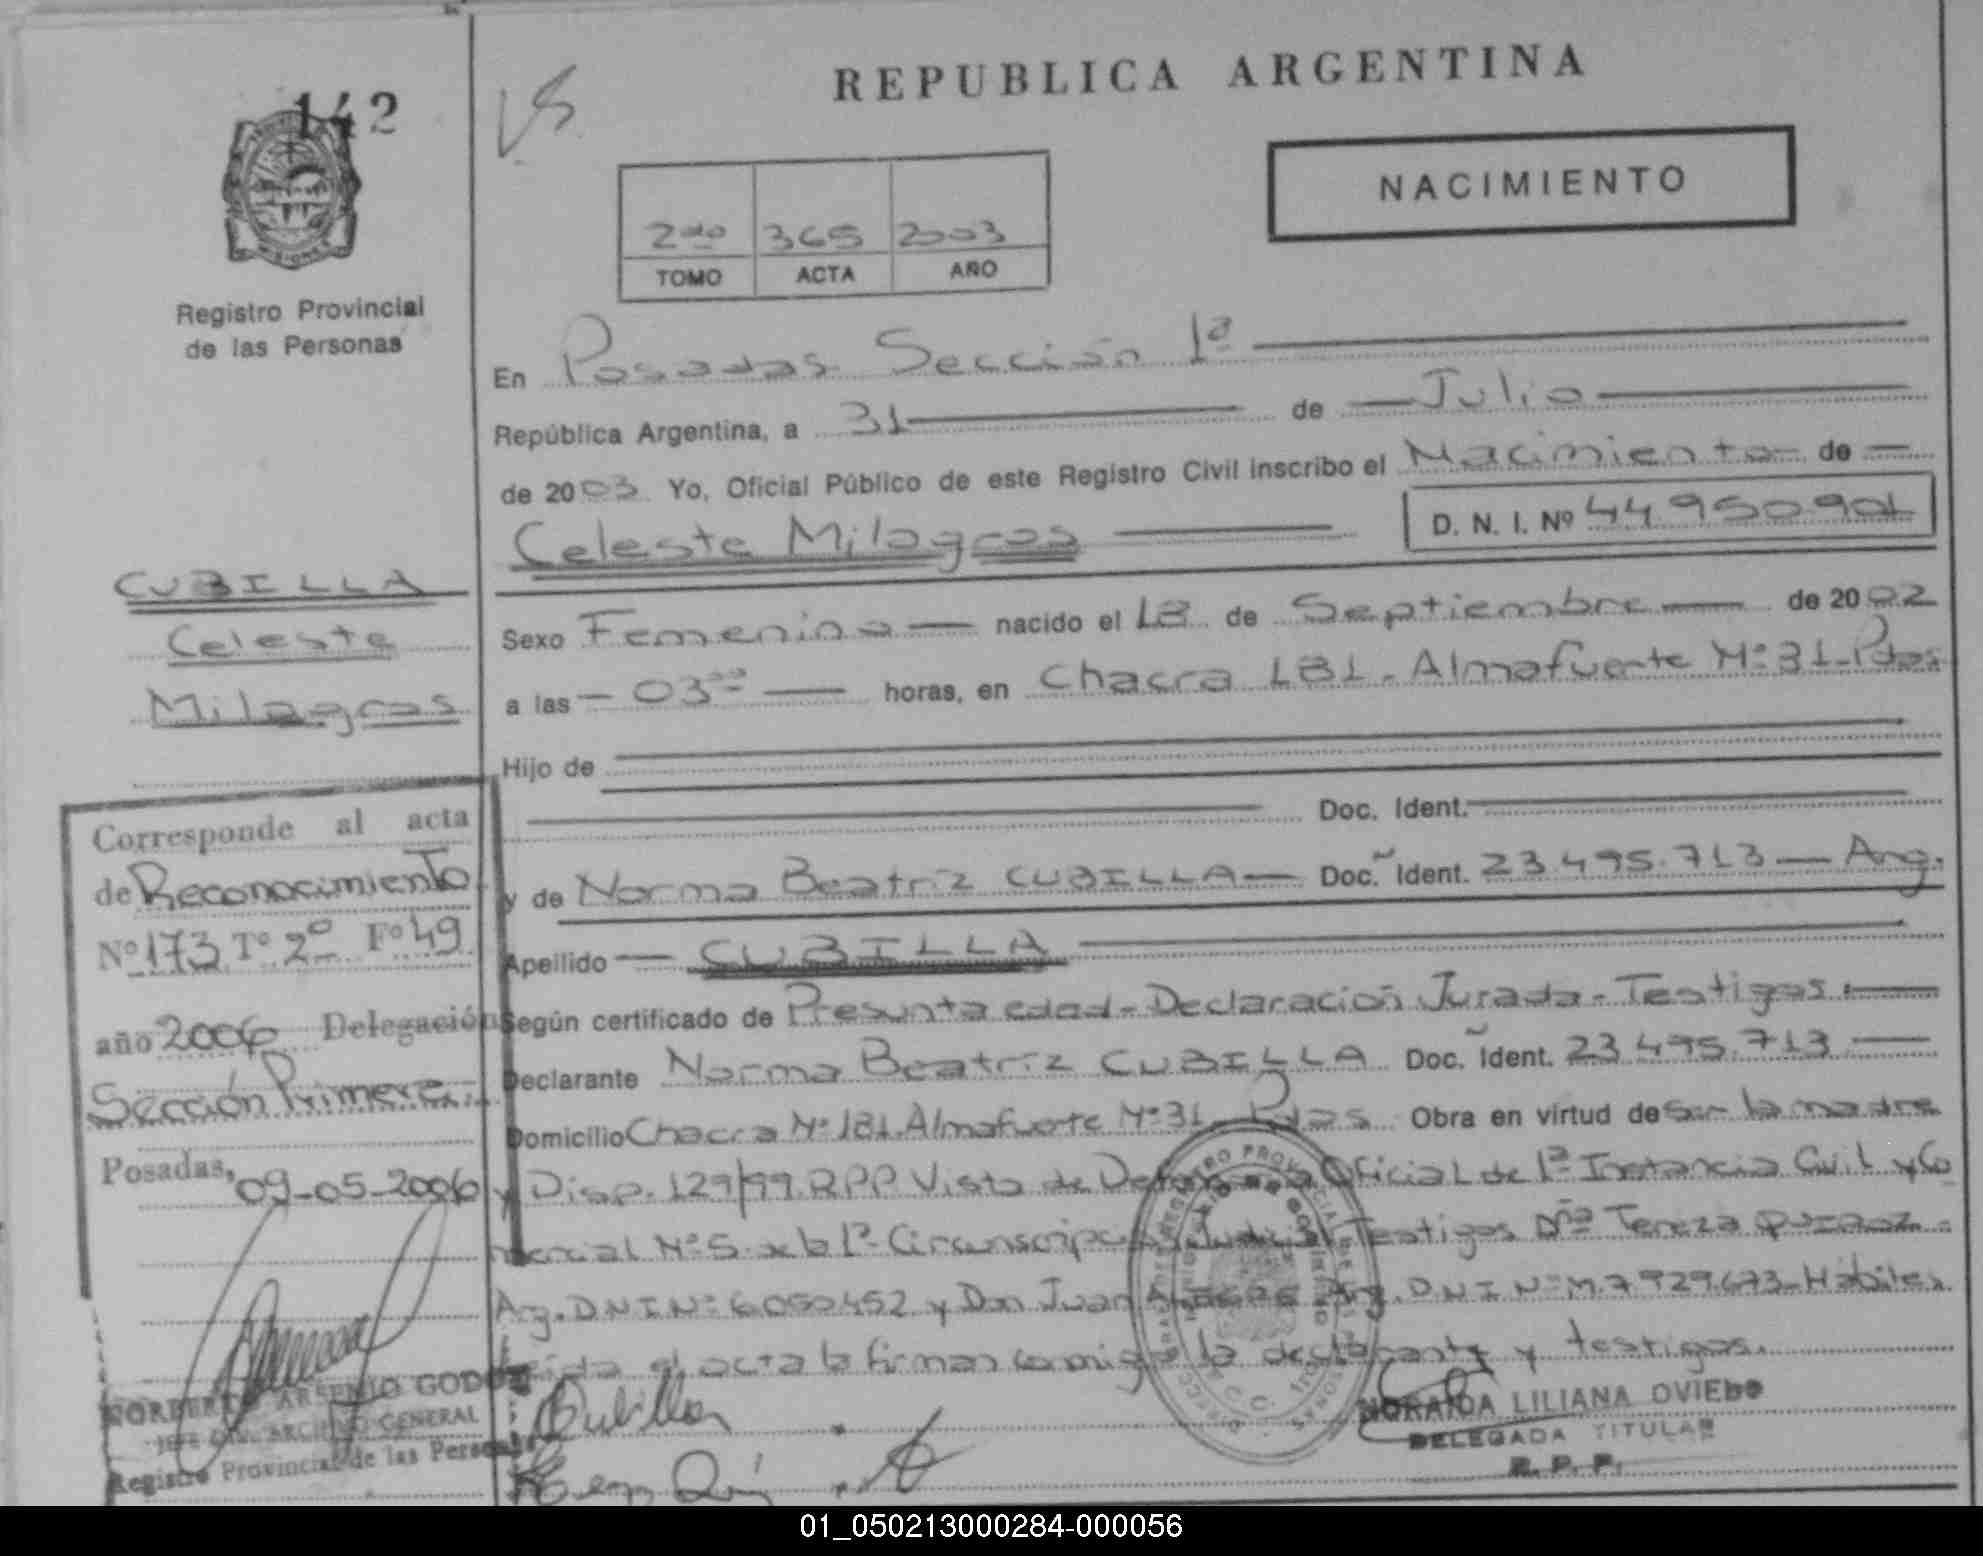 142
REPUBLICA ARGENTINA
NACIMIENTO
2do 365 2003
TOMO ACTA AÑO
Registro Provincial
de las Personas
En Posadas Sección 1ª
República Argentina, a 31 de Julio
de 2003 Yo, Oficial Público de este Registro Civil inscribo el Nacimiento de
Celeste Milagros D. N. I. Nº 44950901
CUBILLA
Celeste
Milagros
Sexo Femenino nacido el 18 de Septiembre de 2002
a las 03 horas, en Chacra 181 - Almafuerte Nº 31 - Pdas
Hijo de
Doc. Ident.
y de Norma Beatriz CUBILLA Doc. Ident. 23.495.713 Arg.
Apellido CUBILLA
Según certificado de Presunta edad - Declaración Jurada - Testigos.
Declarante Norma Beatriz CUBILLA Doc. Ident. 23.495.713
Domicilio Chacra Nº 181. Almafuerte Nº 31 - Pdas Obra en virtud de Ser la madre
y Disp. 129/99. RPP Vista de Oficial de 1ª Instancia Civil y Co
mercial Nº 5. de la 1ª Circunscripción Judicial Testigos Dña Tereza
Arg. DNI Nº 6050452 y Don Juan Arg. DNI Nº M.7929.673 - Hábiles.
Leída el acta la firman conmigo la declarante y testigos.
Corresponde al acta
de Reconocimiento
Nº 173 Tº 2º Fº 49
año 2006 Delegación
Sección Primera
Posadas, 09-05-2006
NORBERTO ARSENIO GODOY
JEFE ARCHIVO GENERAL
Registro Provincial de las Personas
Cubilla
NORAIDA LILIANA OVIEDO
DELEGADA TITULAR
R. P. P.
01_050213000284-000056